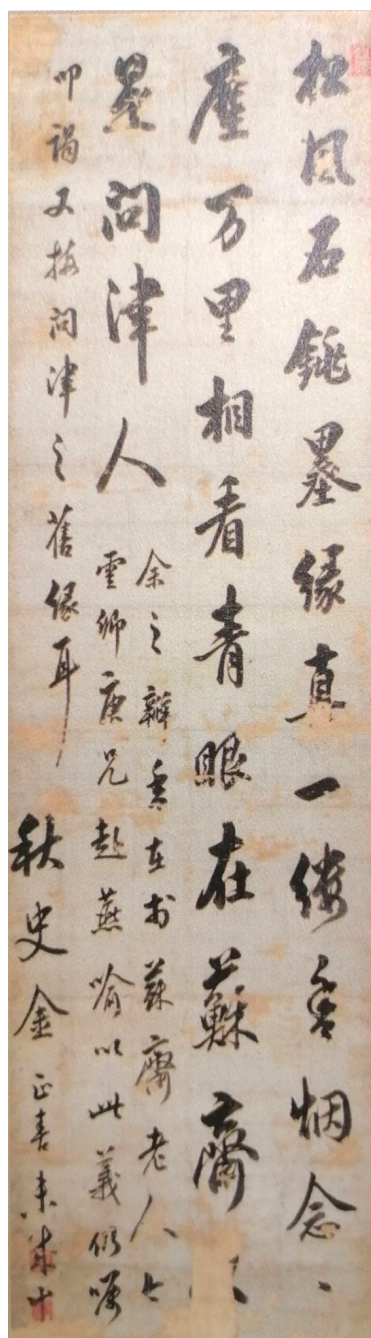 松风石銚墨緣真一縷香烟念丶
塵万里相看青眼在蘇齋
是問津人
余之瓣香在於蘇齋老人今
雲卿庚兄赴燕喻以此義仍囑
叩謁又問津之舊緣耳
秋史金正喜